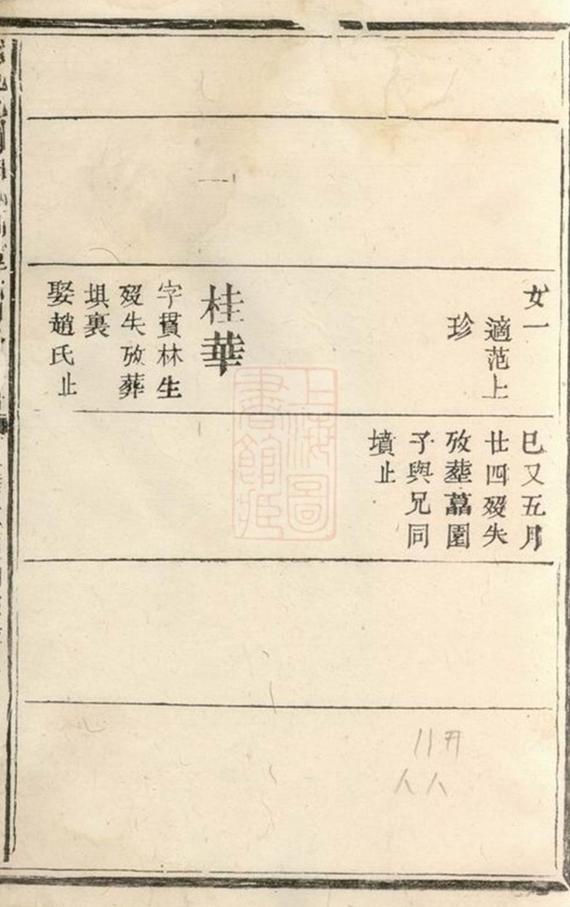 女一
適范上
珍
桂華
字貫林生
歿失攷葬
埧裏
娶趙氏止
巳又五月
廿四歿失
攷塟蒿園
子與兄同
墳止
上海圖
書館藏